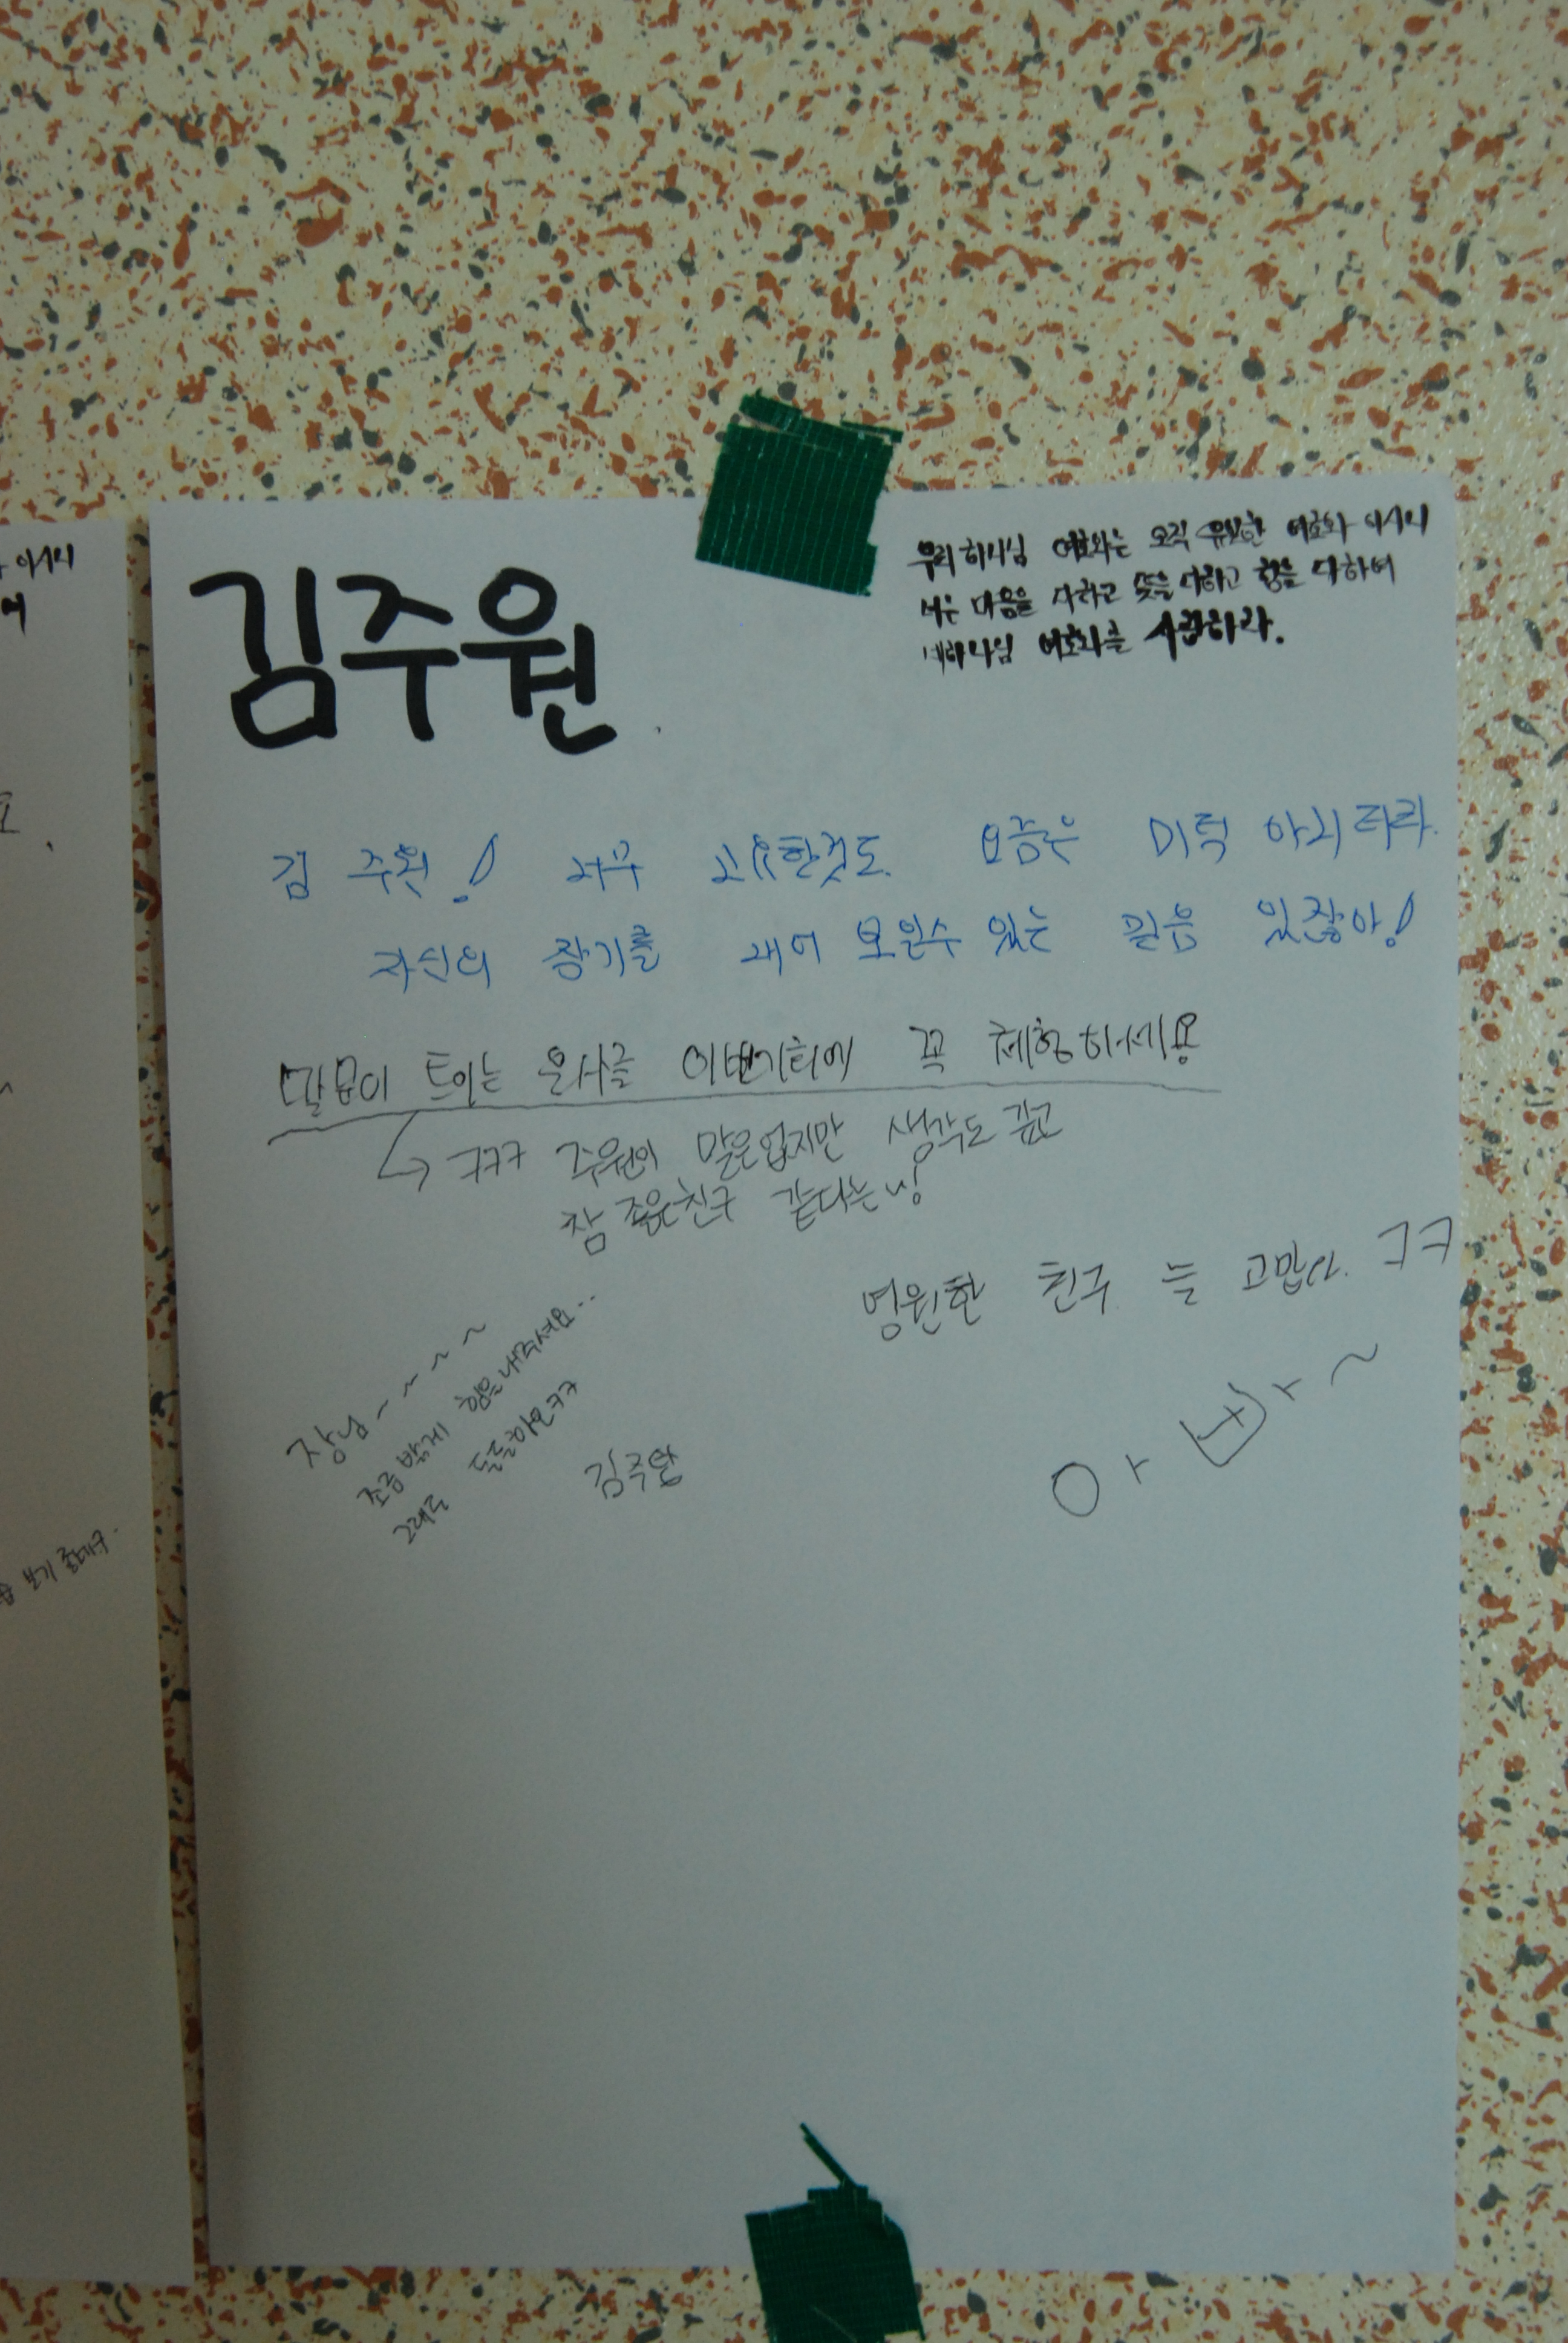 김주원
우리 하나님 여호와는 오직 유일한 여호와 이시니
너는 마음을 다하고 뜻을 다하고 힘을 다하여
네 하나님 여호와를 사랑하라.
김 주원! 너무 고요한것도 요즘은 미덕 아니더라.
자신의 장기를 내어 보일수 있는 믿음 있잖아!
말문이 트이는 은사를 이번기회에 꼭 체험하세용
→ ㅋㅋㅋ 주원이 말은없지만 생각도 깊고
참 좋은친구 같다는ㅎ!
영원한 친구 늘 고맙다. ㅋㅋ
장님~~~~
조금 밝게 힘을내주셔요..
그래도 돌돌하오ㅋㅋ
김주원
아 ㅂ ~
이시니
여
요.
보기 좋데ㅋ.